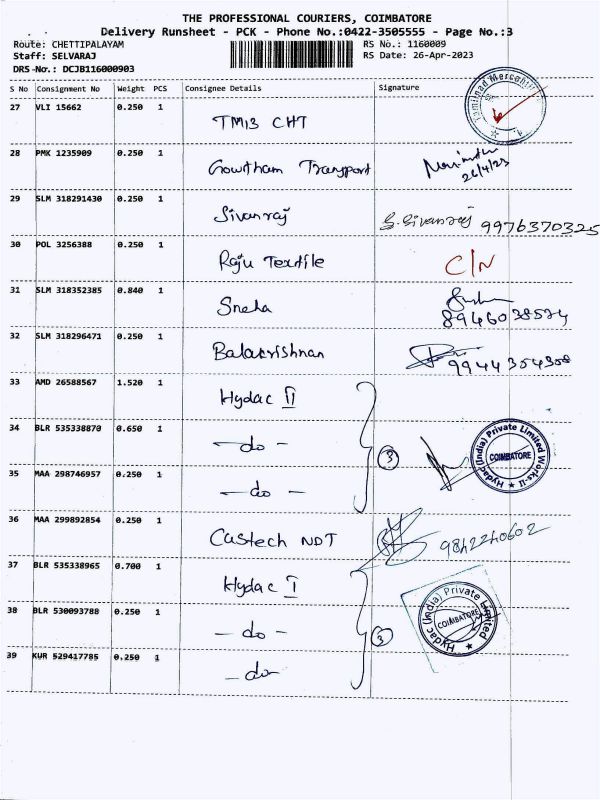 THE PROFESSIONAL COURIERS, COIMBATORE
Delivery Runsheet - PCK - Phone No.:0422-3505555 - Page No.:3
Route: CHETTIPALAYAM RS No.: 1160009
Staff: SELVARAJ RS Date: 26-Apr-2023
DRS No.: DCJB116000903
S No Consignment No Weight PCS Consignee Details Signature
27 VLI 15662 0.250 1 TM13 CHT
28 PMK 1235909 0.250 1 Gowtham Transport
26/4/23
29 SLM 318291430 0.250 1 Sivanraj S.Sivanraj 9976370325
30 POL 3256388 0.250 1 Raju Textile C/N
31 SLM 318352385 0.840 1 Sneha
32 SLM 318296471 0.250 1 Balakrishnan 9944354308
33 AMD 26588567 1.520 1 Hydac II
34 BLR 535338870 0.650 1 -do- 3 Hydac (India) Private Limited Works-II COIMBATORE
35 MAA 298746957 0.250 1 -do-
36 MAA 299892854 0.250 1 Castech NDT 9842240602
37 BLR 535338965 0.700 1 Hydac I
38 BLR 530093788 0.250 1 -do- 3 Hydac (India) Private Limited COIMBATORE
39 KUR 529417785 0.250 1 -do-